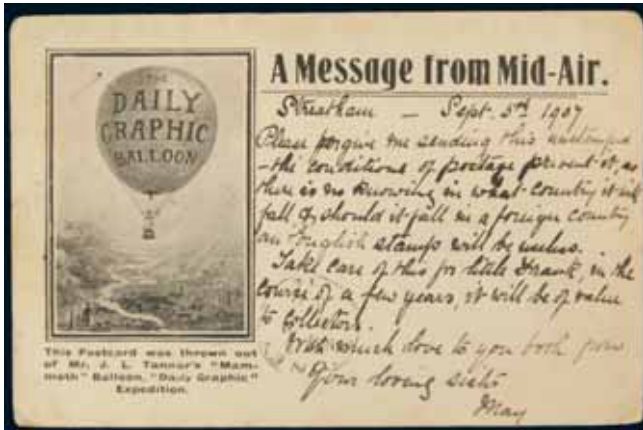 The
DAILY
GRAPHIC
BALLOON
This Postcard was thrown out
of Mr. J. L. Tannar's "Mam-
moth" Balloon, "Daily Graphic"
Expedition.
A Message from Mid-Air.
Streatham — Sept. 5th 1907
Please forgive me sending this unstamped
- the conditions of postage prevent it, as
there is no knowing in what country it will
fall & should it fall in a foreign country
an English stamp will be useless.
Take care of this for little Frank, in the
course of a few years, it will be of value
to collectors.
With much love to you both from
Your loving sister
May